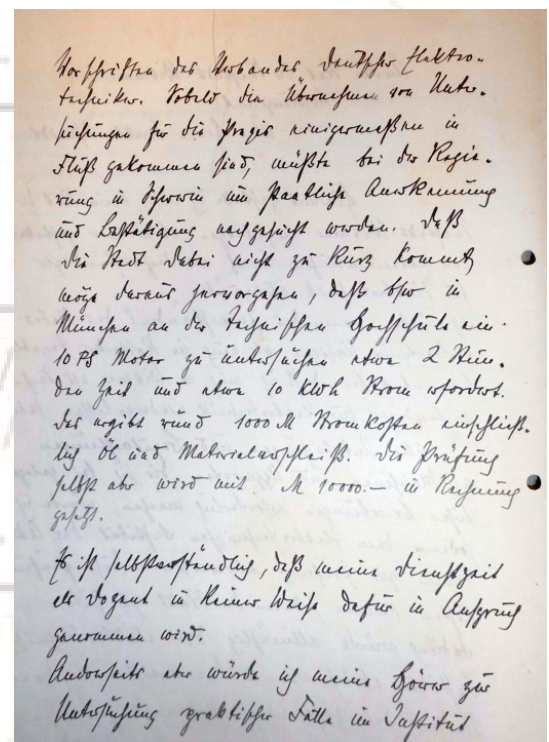 Vorschriften des Verbandes Deutscher Elektro-
techniker. Sobald die Übernahmen von Unter-
suchungen für die Praxis einigermaßen in
Fluß gekommen sind, müßte bei der Regie-
rung in Schwerin um staatliche Anerkennung
und Bestätigung nachgesucht werden. Daß
die Stadt dabei nicht zu kurz kommt,
möge daraus hervorgehen, daß bsw in
München an der Technischen Hochschule ein
10 PS Motor zu untersuchen etwa 2 Stun-
den Zeit und etwa 10 KWh Strom erfordert.
Das ergibt rund 1000 M Stromkosten einschließ-
lich Öl und Materialverschleiß. Die Prüfung
selbst aber wird mit M 10000.— in Rechnung
gesetzt.
Es ist selbstverständlich, daß meine Dienstzeit
als Dozent in keiner Weise dafür in Anspruch
genommen wird.
Anderseits aber würde ich meine Hörer zur
Untersuchung praktischer Fälle im Institut